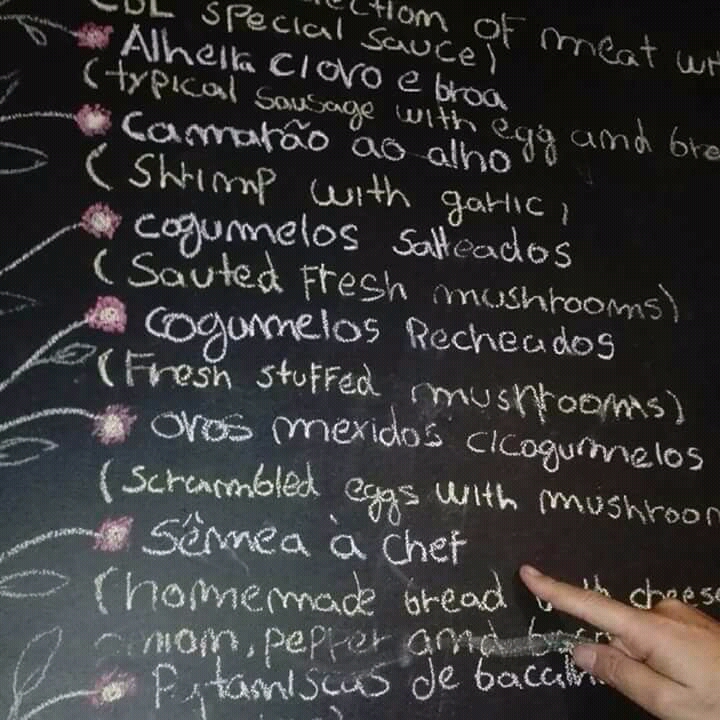 of meat
special sauce)
Alheira c/ovo e broa
(typical sausage with egg and
Camarão ao alho
(Shrimp with garlic)
Cogumelos Salteados
(Sauted Fresh mushrooms)
Cogumelos Recheados
(Fresh stuffed mushrooms)
ovos mexidos c/cogumelos
(scrambled eggs with
Sêmea à chef
(homemade bread with cheese
onion, pepper and
Pataniscas de